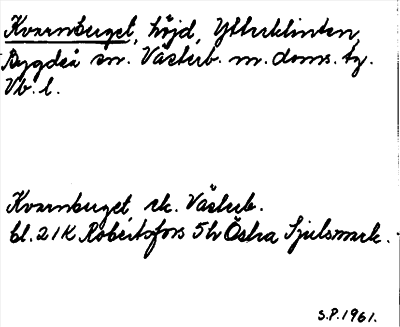 Kvarnberget, höjd, Ytterklinten,
Bygdeå sn. Västerb. m. doms. tg.
Vb. l.
Kvarnberget, ek. Västerb.
bl. 21K Robertsfors 5h Östra Sjulsmark.
S.P. 1961.